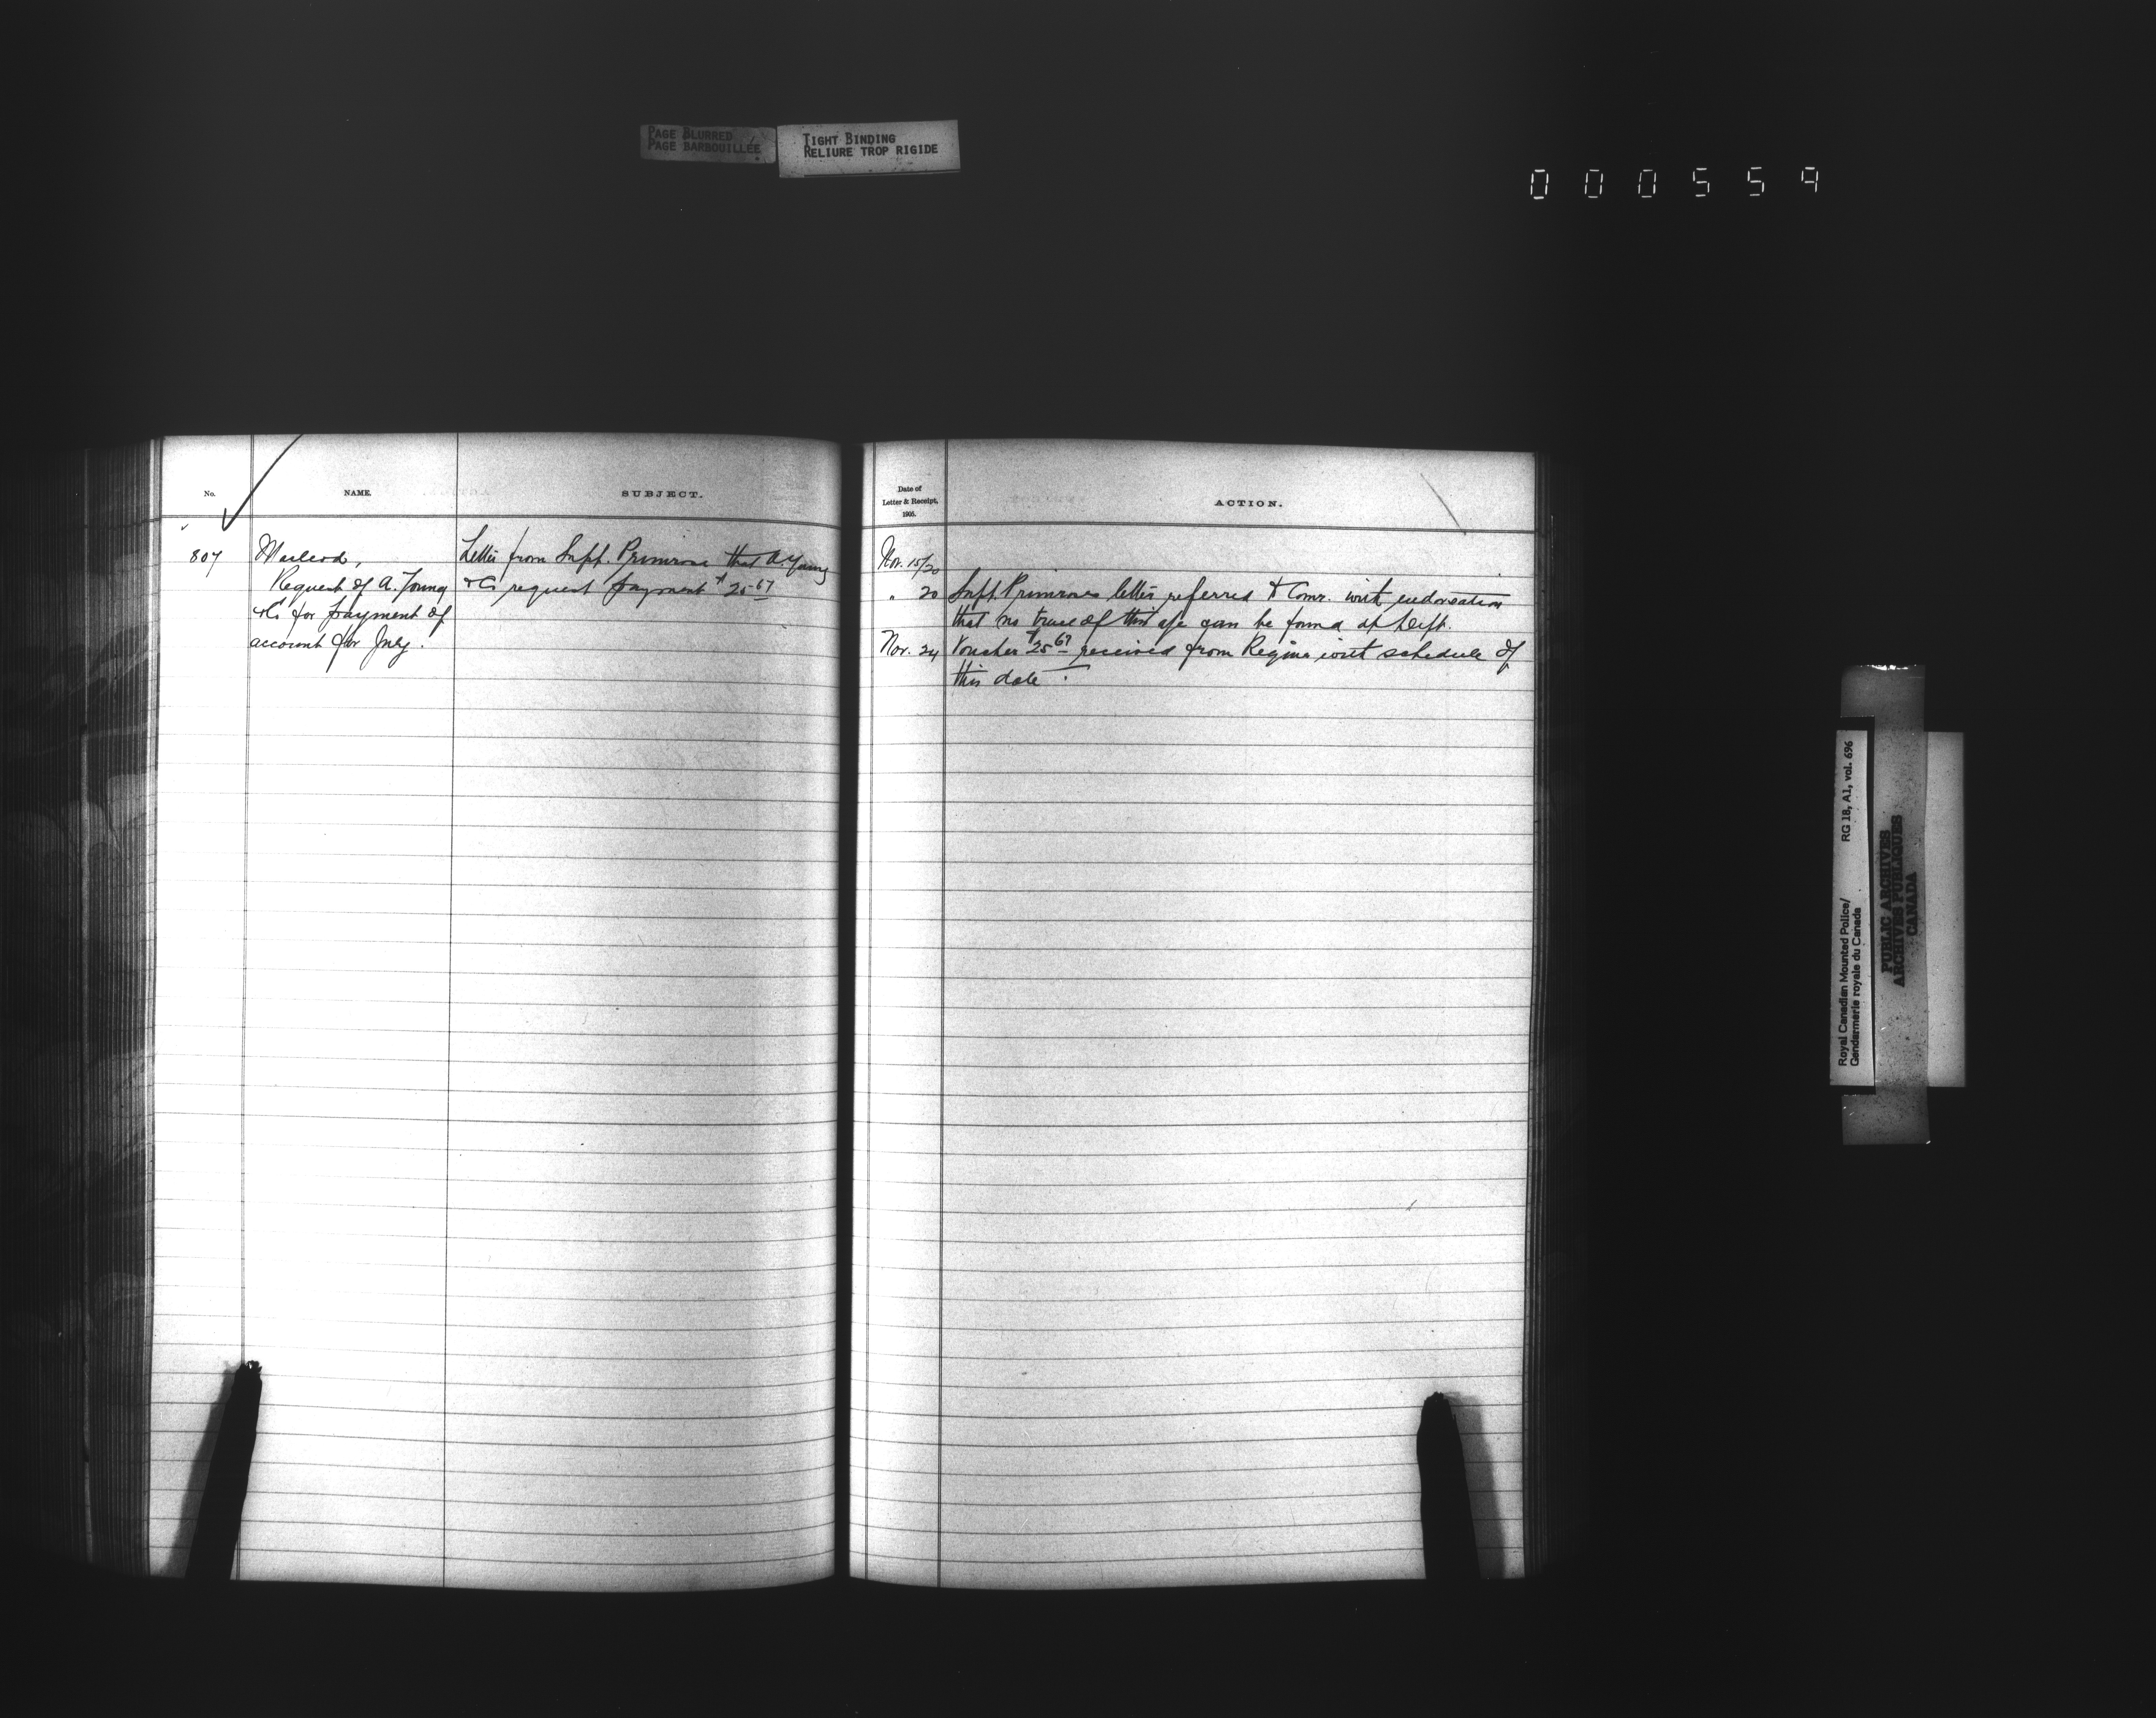 PAGE BLURRED
PAGE BARBOUILLÉE
TIGHT BINDING
RELIURE TROP RIGIDE
000559
No. NAME. SUBJECT.
807 Macleod, Letter from Supt. Primrose that A. Young
Request of A. Young & Co request payment $25.67
& Co for payment of
account for July.
Date of
Letter & Receipt,
1905.
ACTION.
Nov. 15/20
" 20 Supt. Primrose letter referred to Comr. with endorsation
that no trace of this a/c can be found at Dept.
Nov. 24 Voucher $25.67 received from Regina with schedule of
this date.
Royal Canadian Mounted Police/ RG 18, A1, vol. 696
Gendarmerie royale du Canada
PUBLIC ARCHIVES
ARCHIVES PUBLIQUES
CANADA